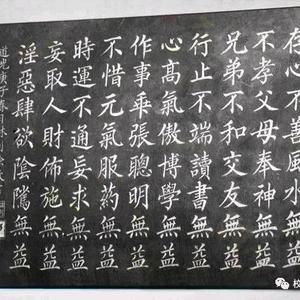 存心不善風水無益
不孝父母奉神無益
兄弟不和交友無益
行止不端讀書無益
心高氣傲博學無益
作事乖張聰明無益
不惜元氣服藥無益
時運不通妄求無益
妄取人財佈施無益
淫惡肆欲陰騭無益
道光庚子春月林則徐